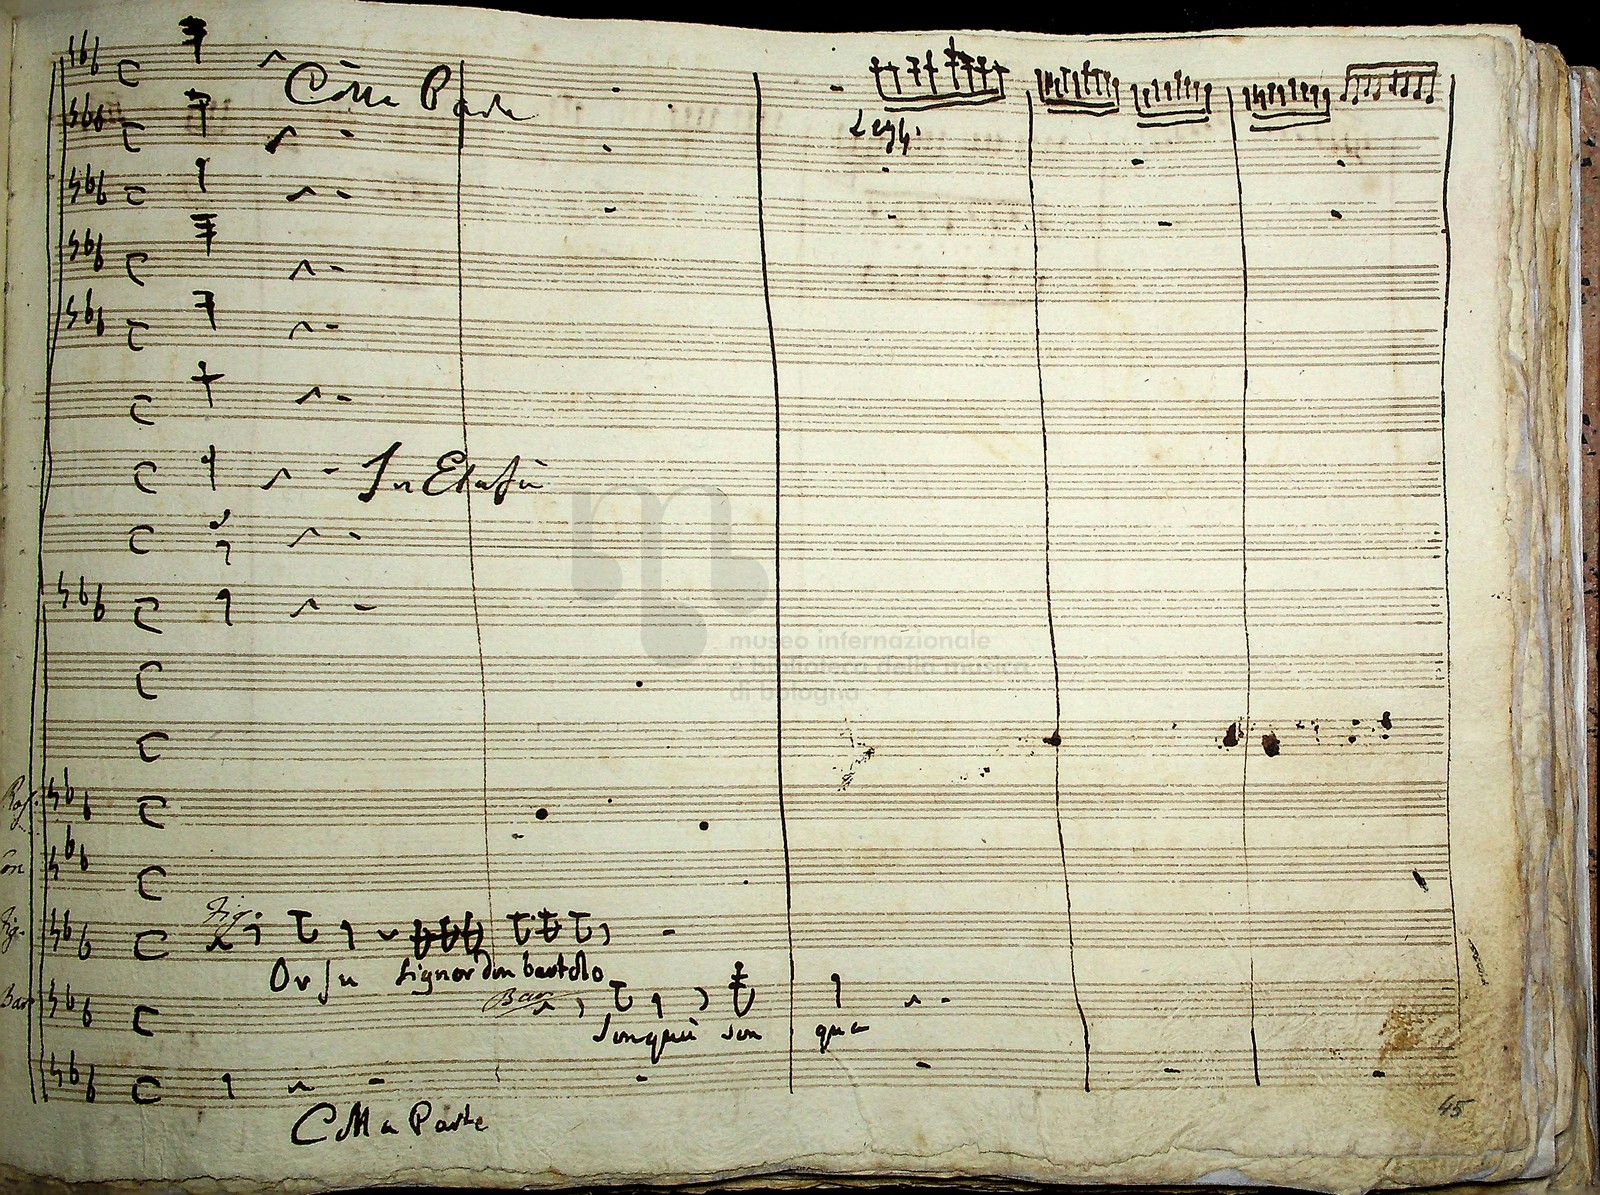 Colla Parte
Legg.
In Elafà
museo internazionale
e biblioteca della musica
di bologna
Ros.
Fig.
Fig.
Or su signor don bartolo
Bar
Bar.
son quà son qua
Colla Parte
45